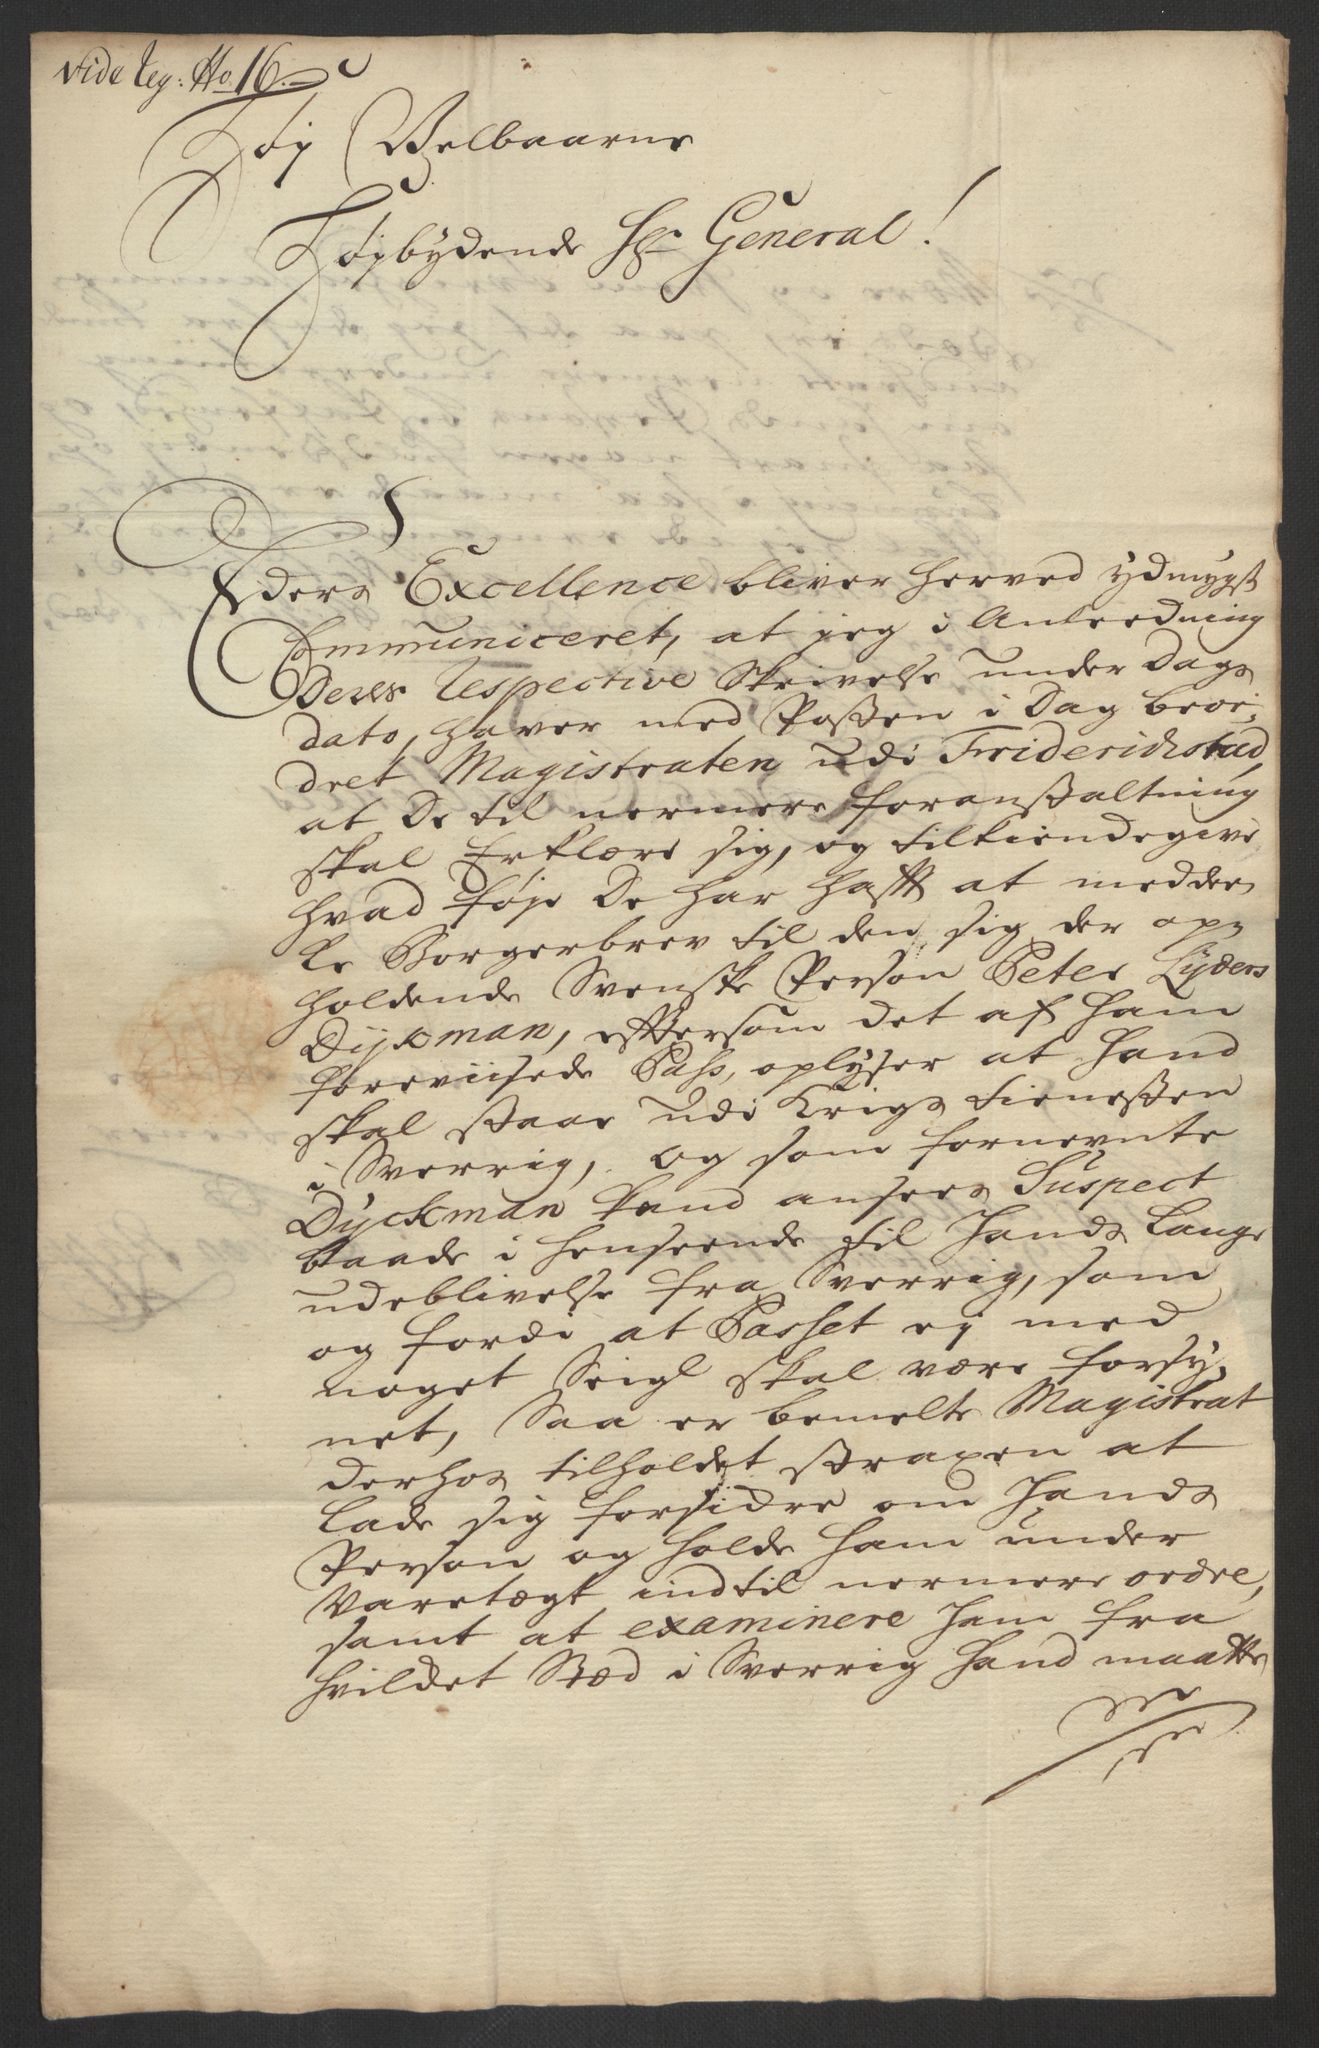 vide Reg: No 16.
Høy Velbaarne
Høybydende Hr General!
Eders Excellence bliver herved ydmygst
Communiceret, at jeg i Anleedning
Deres Respective Skrivelse under Dags
dato, haver med Posten i Dag beor,
dret Magistraten udi Friderichstad,
at De til nermere foranstaltning
skal Erklære sig, og tilkiendegive
hvad føje De har hafft at meddee,
le Borgerbrev til den sig der op,
holdende Svenske Person Peter Lyders
Dyckman, efftersom det af ham
foreviisede Pass, oplyser at hand
skal staae udi Krigs tienesten
i Sverrig, og som fornevnte
Dyckman kand ansees Suspect
baade i henseende til Hands Lange
udeblivelse fra Sverrig, som
og fordi at Passet ej med
noget Seigl skal være forsy,
net, Saa er bemelte Magistrat
derhos tilholdet straxen at
lade sig forsidre om Hands
Person og holde ham under
Varetægt indtil nermere ordre,
samt at examinere Ham fra
hvildet Stæd i Sverrig Hand maatte